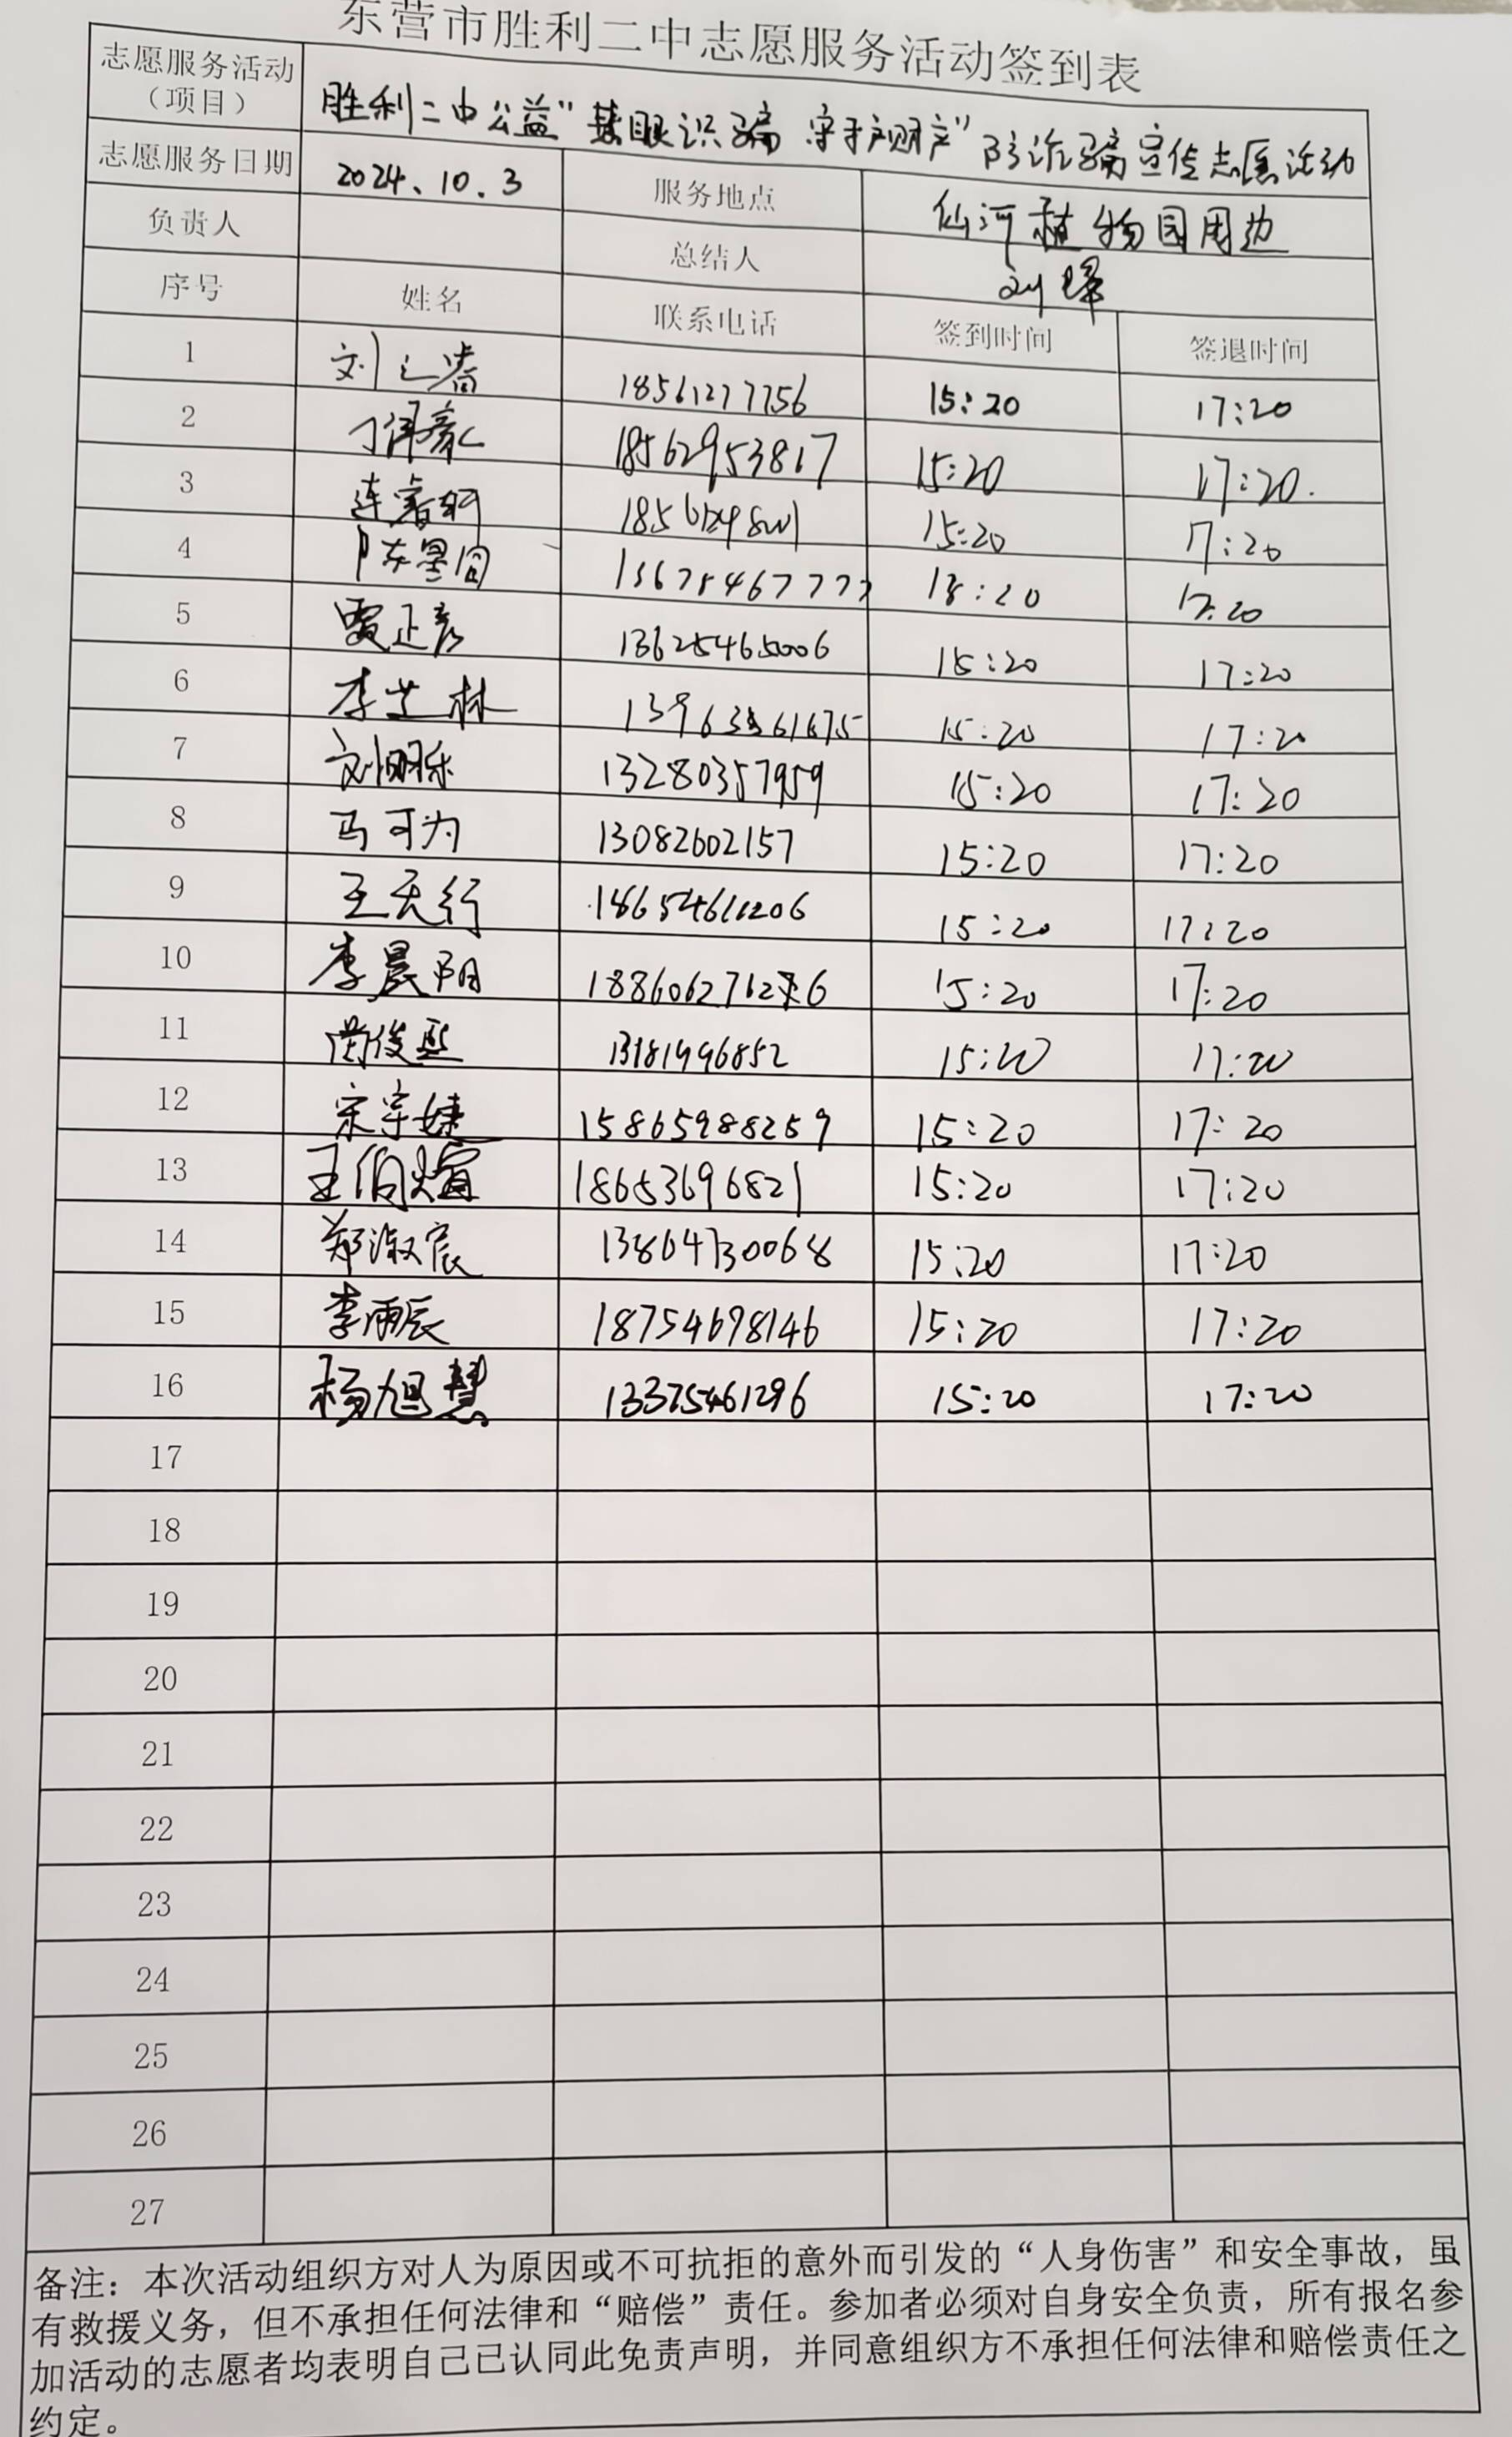 东营市胜利二中志愿服务活动签到表
志愿服务活动（项目） 胜利二中公益“慧眼识骗 守护财产”防诈骗宣传志愿活动
志愿服务日期 2024.10.3 服务地点 仙河植物园周边
负责人 总结人 刘
序号 姓名 联系电话 签到时间 签退时间
1 刘 18561277756 15:20 17:20
2 18562953817 15:20 17:20.
3 连睿轲 15:20 17:20
4 陈墨涵 15:20 17:20
5 贾正彦 13625465006 15:20 17:20
6 李芷林 15:20 17:20
7 刘明乐 13280357959 15:20 17:20
8 马可为 13082602157 15:20 17:20
9 王天行 18654611206 15:20 17:20
10 李晨阳 15:20 17:20
11 俊熙 13181996852 15:20 17:20
12 宋宇婕 15865988259 15:20 17:20
13 王伯煊 18653696821 15:20 17:20
14 郑淑宸 13864730068 15:20 17:20
15 李雨辰 18754698146 15:20 17:20
16 杨旭慧 13375461296 15:20 17:20
17
18
19
20
21
22
23
24
25
26
27
备注：本次活动组织方对人为原因或不可抗拒的意外而引发的“人身伤害”和安全事故，虽
有救援义务，但不承担任何法律和“赔偿”责任。参加者必须对自身安全负责，所有报名参
加活动的志愿者均表明自己已认同此免责声明，并同意组织方不承担任何法律和赔偿责任之
约定。